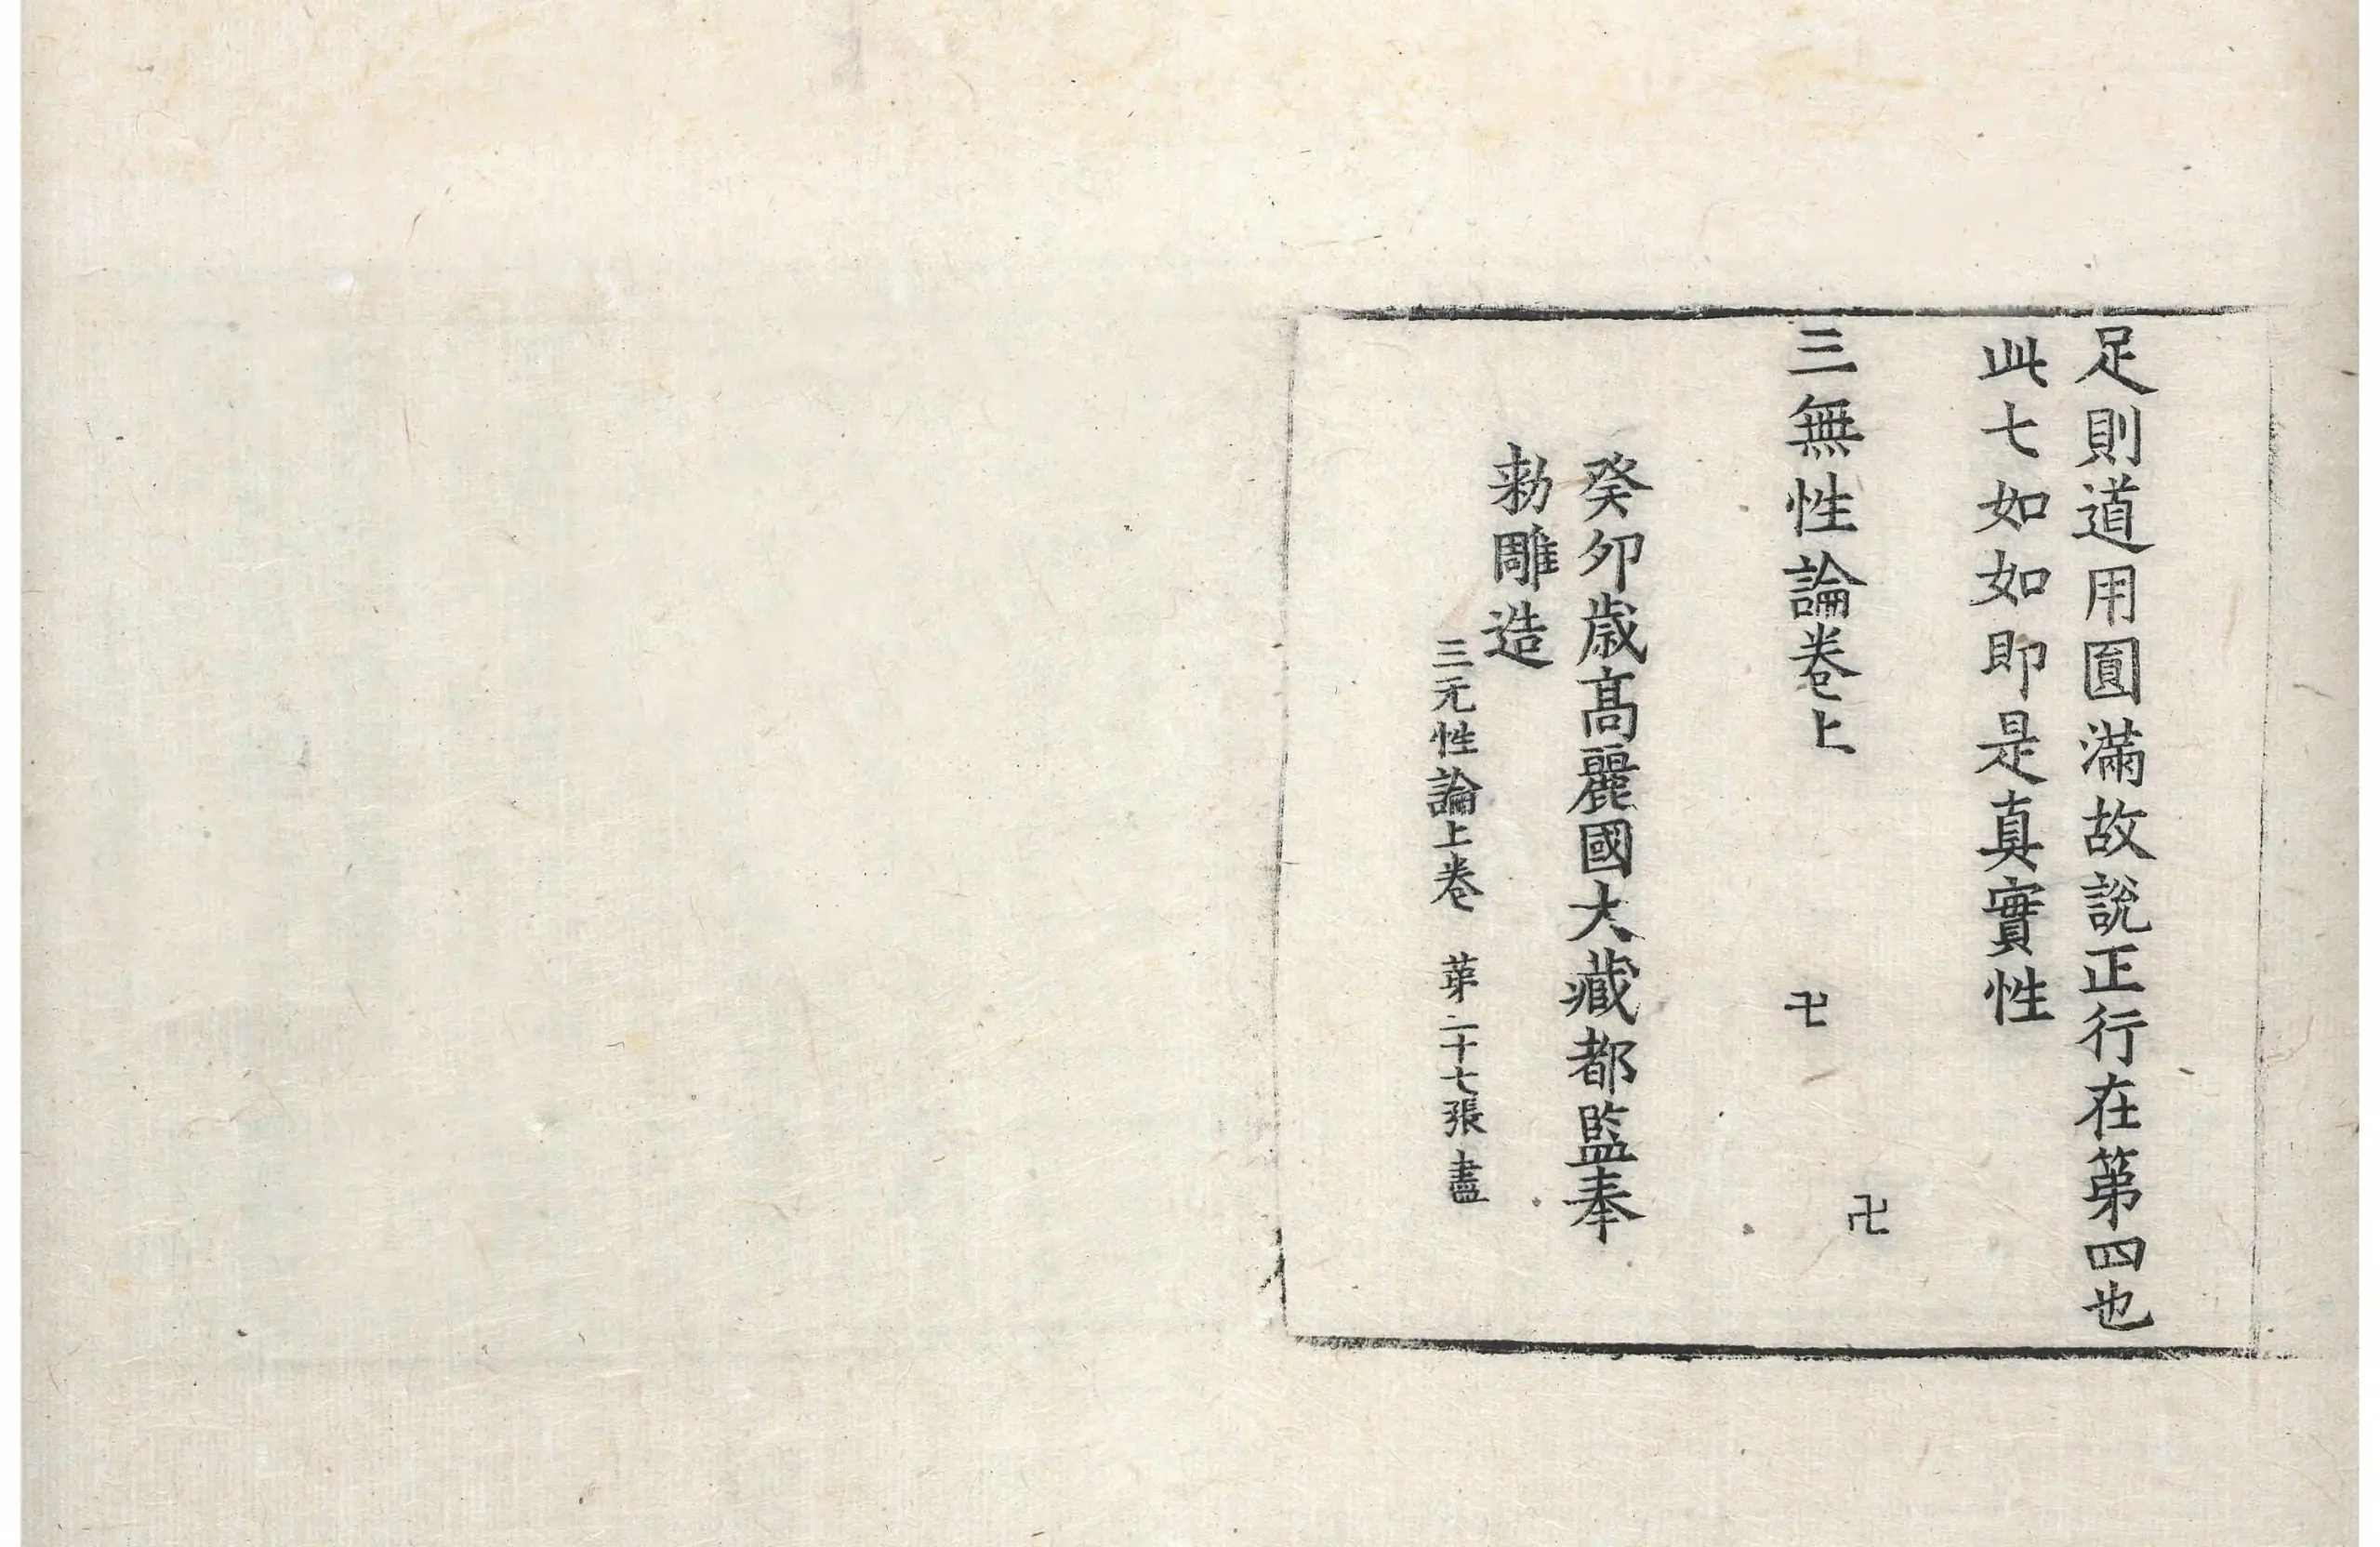 足則道用圎滿故說正行在第四也
此七如如即是真實性
三無性論卷上
卍
卍
癸卯歳髙麗國大藏都監奉
勑雕造
三无性論上卷 苐二十七張盡